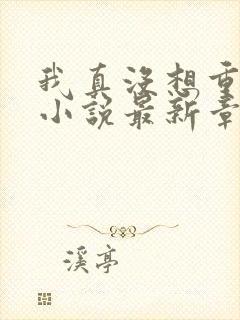 我真没想重
小说最新章
溪亭